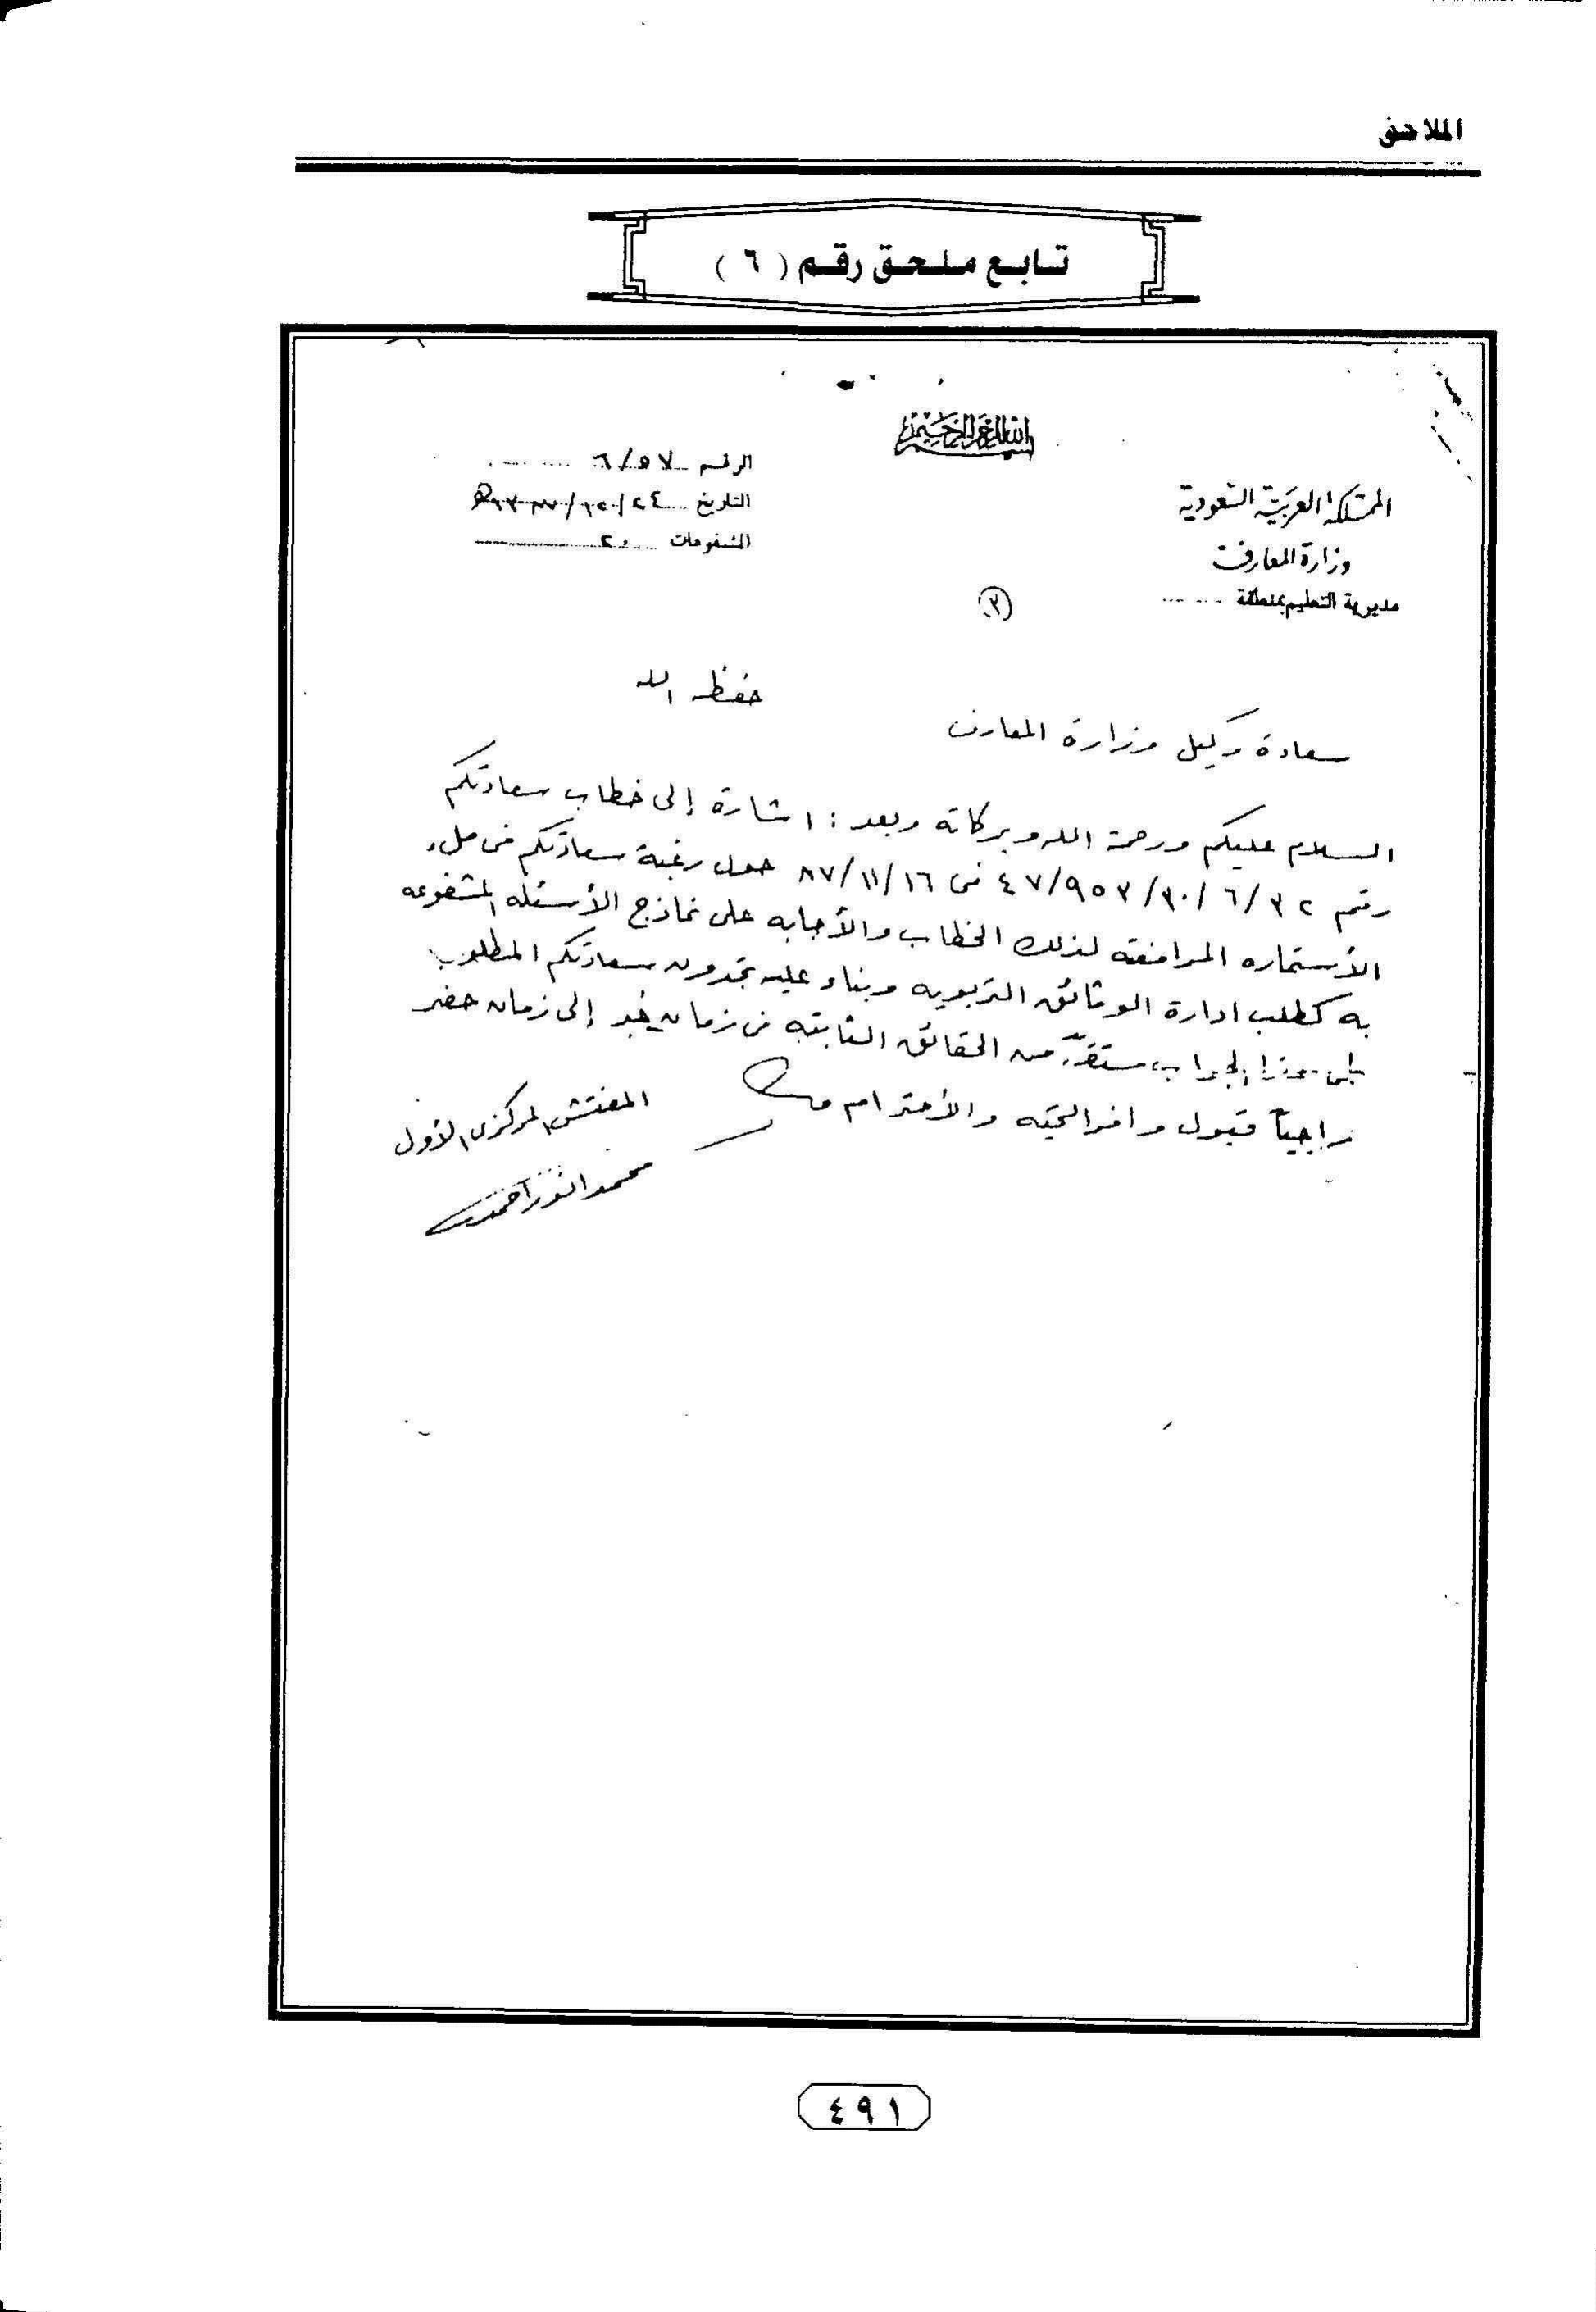 الملاحق
تابع ملحق رقم ( ٦ )
بسم الله الرحمن الرحيم
المملكة العربية السعودية
وزارة المعارف
مديرية التعليم بمنطقة
الرقم ٦/٥٧
التاريخ ١٣٨٧/١٢/٢٤هـ
المشفوعات ٢
٣
سعادة وكيل وزارة المعارف حفظه الله
السلام عليكم ورحمة الله وبركاته وبعد : اشارة إلى خطاب سعادتكم
رقم ٣٢/٦/٣٠/٤٧/٩٥٣ فى ٨٧/١١/١٦ حول رغبة سعادتكم فى ملء
الأستماره المرافقه لذلك الخطاب والأجابه على نماذج الأسئله المشفوعه
به كطلب ادارة الوثائق التربويه وبناء عليه تجدون سعادتكم المطلوب
طى هذا الجواب من الحقائق الثابته من زمان إلى زمان حضر
راجياً قبول وافر التحيه والأحترام
المفتش المركزى الأول
محمد انور أحمد
٤٩١